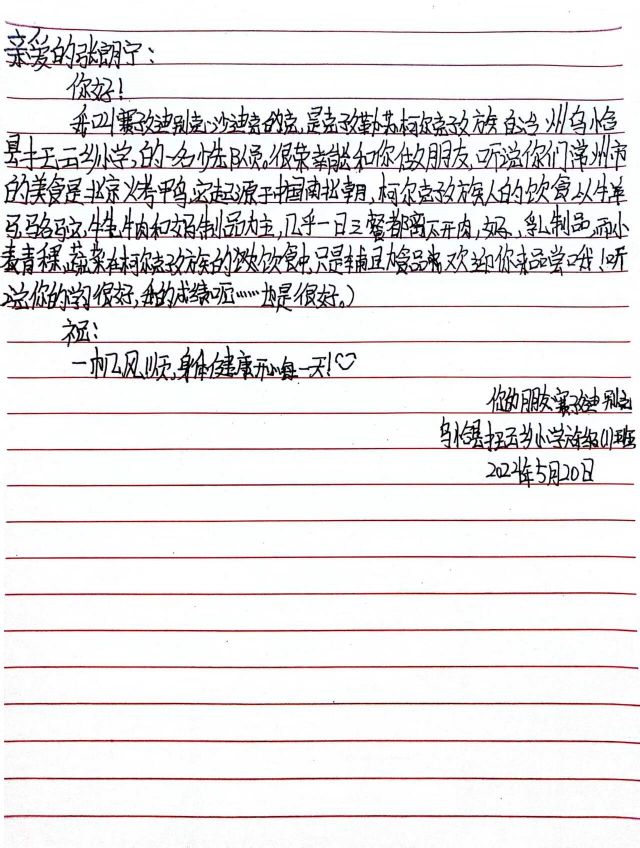 亲爱的张朗宁:
你好!
我叫赛孜迪别克·沙迪克的克,是克孜勒苏柯尔克孜族自治州乌恰
县托云乡小学,的一名少先队员。很荣幸能和你做朋友,听说你们常州市
的美食是北京烤鸭,它起源于中国南北朝,柯尔克孜族人的饮食以牛羊
马骆驼,牛羊肉和奶制品为主,几乎一日三餐都离不开肉,奶、乳制品,而小
麦青稞,蔬菜在柯尔克孜族的饮食中,只是辅助食品,欢迎你来品尝哦!听
说你的学习很好,我的成绩呃……也是很好。)
祝:
一帆风顺,身体健康开心每一天!♡
你的朋友赛孜迪别克
乌恰县托云乡小学年级(1)班
2024年5月20日